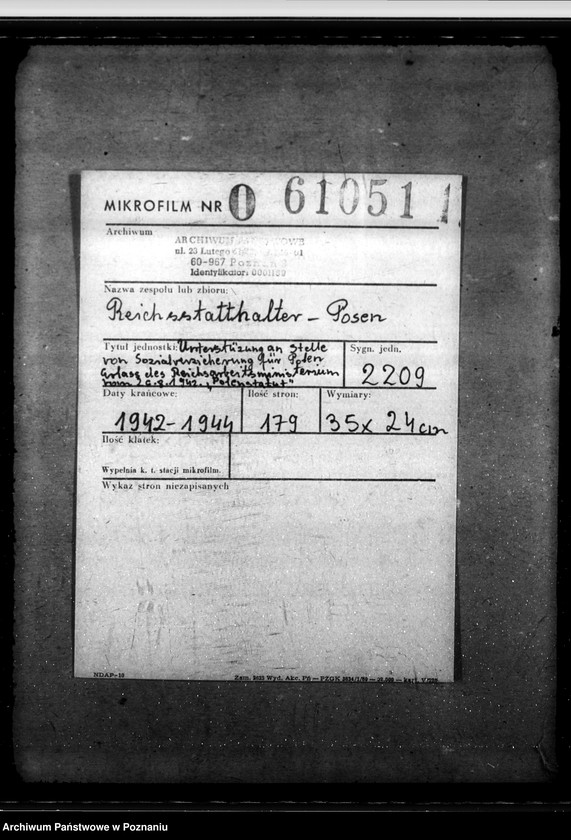 MIKROFILM NR 0 61051 1
Archiwum
ARCHIWUM PAŃSTWOWE
ul. 23 Lutego
60-967 Poznań
Identyfikator:
Nazwa zespołu lub zbioru:
Reichsstatthalter - Posen
Tytuł jednostki: Unterstüzung an Stelle
von Sozialverzicherung für Polen
Erlass des Reichsarbeitsministerium
vom 26.8.1942. "Polenstatut"
Sygn. jedn.
2209
Daty krańcowe:
1942-1944
Ilość stron:
179
Wymiary:
35x 24cm
Ilość klatek:
Wypełnia k. t. stacji mikrofilm.
Wykaz stron niezapisanych
NDAP-10
Archiwum Państwowe w Poznaniu